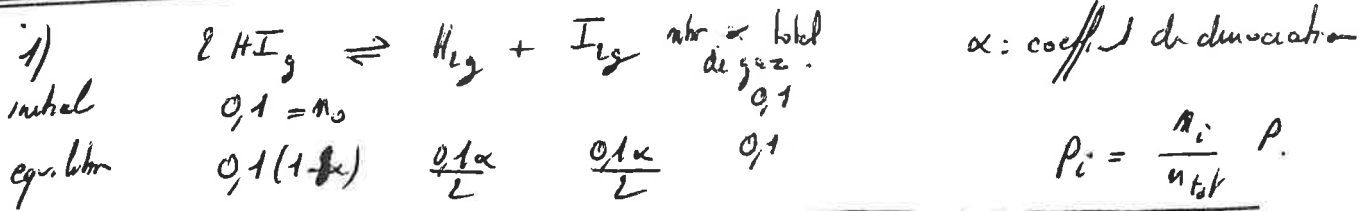 1) 2 HI g ⇌ H2g + I2g nbr α total α : coefft de dissociation
de gaz.
initial 0,1 = n0 0,1
equilibre 0,1(1-α) 0,1α/2 0,1α/2 0,1 Pi = ni/ntot P.